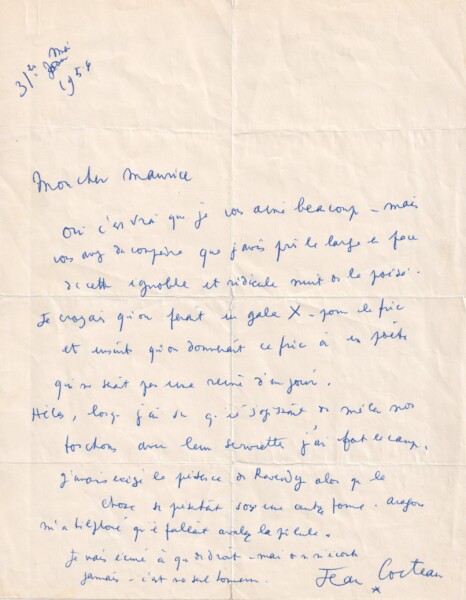 31 Mai
1954
Mon cher Maurice
Oui c'est vrai que je vous aime beaucoup - mais
vous avez du comprendre que j'avais pris le large en face
de cette ignoble et ridicule nuit de la poésie.
Je croyais qu'on ferait un gala X - pour le fric
et ensuite qu'on donnerait ce fric à un poète
qui ne serait pas une reine d'un jour.
Hélas, lorsque j'ai su qu'il s'agissait de mêler nos
torchons avec leurs serviettes j'ai foutu le camp.
J'avais exigé la présence de Reverdy alors que la
chose se présentait sous une autre forme. Aragon
m'a téléphoné qu'il fallait avaler la pilule.
Je vais à qui de droit - mais on n'écoute
jamais - c'est
Jean Cocteau